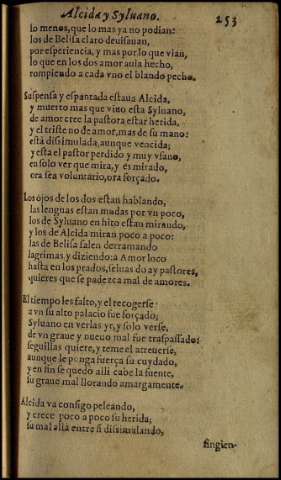 Alcida y Syluano.
253
lo menos, que lo mas ya no podian:
los de Belisa claro deuisauan,
por esperiencia, y mas por lo que vian,
lo que en los dos amor auia hecho,
rompiendo a cada vno el blando pecho.
Suspensa y espantada estaua Alcida,
y muerto mas que viuo esta Syluano,
de amor cree la pastora estar herida,
y el triste no de amor, mas de su mano:
està dissimulada, aunque vencida;
y esta el pastor perdido y muy vfano,
en solo ver que mira, y es mirado,
ora sea voluntario, ora forçado.
Los ojos de los dos estan hablando,
las lenguas estan mudas por vn poco,
los de Syluano en hito estan mirando,
y los de Alcida miran poco a poco:
las de Belisa salen derramando
lagrimas y diziendo: a Amor loco
hasta en los prados, seluas do ay pastores,
quieres que se padezca mal de amores.
El tiempo les falto, y el recogerse
a vn su alto palacio fue forçado;
Syluano en verlas yr, y solo verse,
de vn graue y nueuo mal fue traspassado:
seguillas quiere, y teme el atreuerse,
aunque le ponga fuerça su cuydado,
y en fin se quedo alli cabe la fuente,
su graue mal llorando amargamente.
Alcida va consigo peleando,
y crece poco a poco su herida;
su mal alla entre si dissimulando,
fingien-